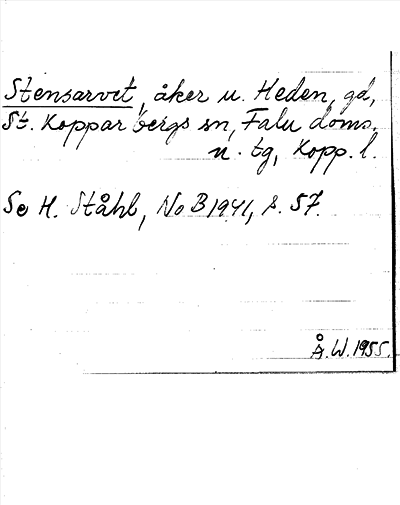 Stensarvet, åker u. Heden, gd,
St. Kopparbergs sn, Falu doms.
n. tg, Kopp. l.
Se H. Ståhl, NoB 1941, s. 57.
Å.W. 1955.